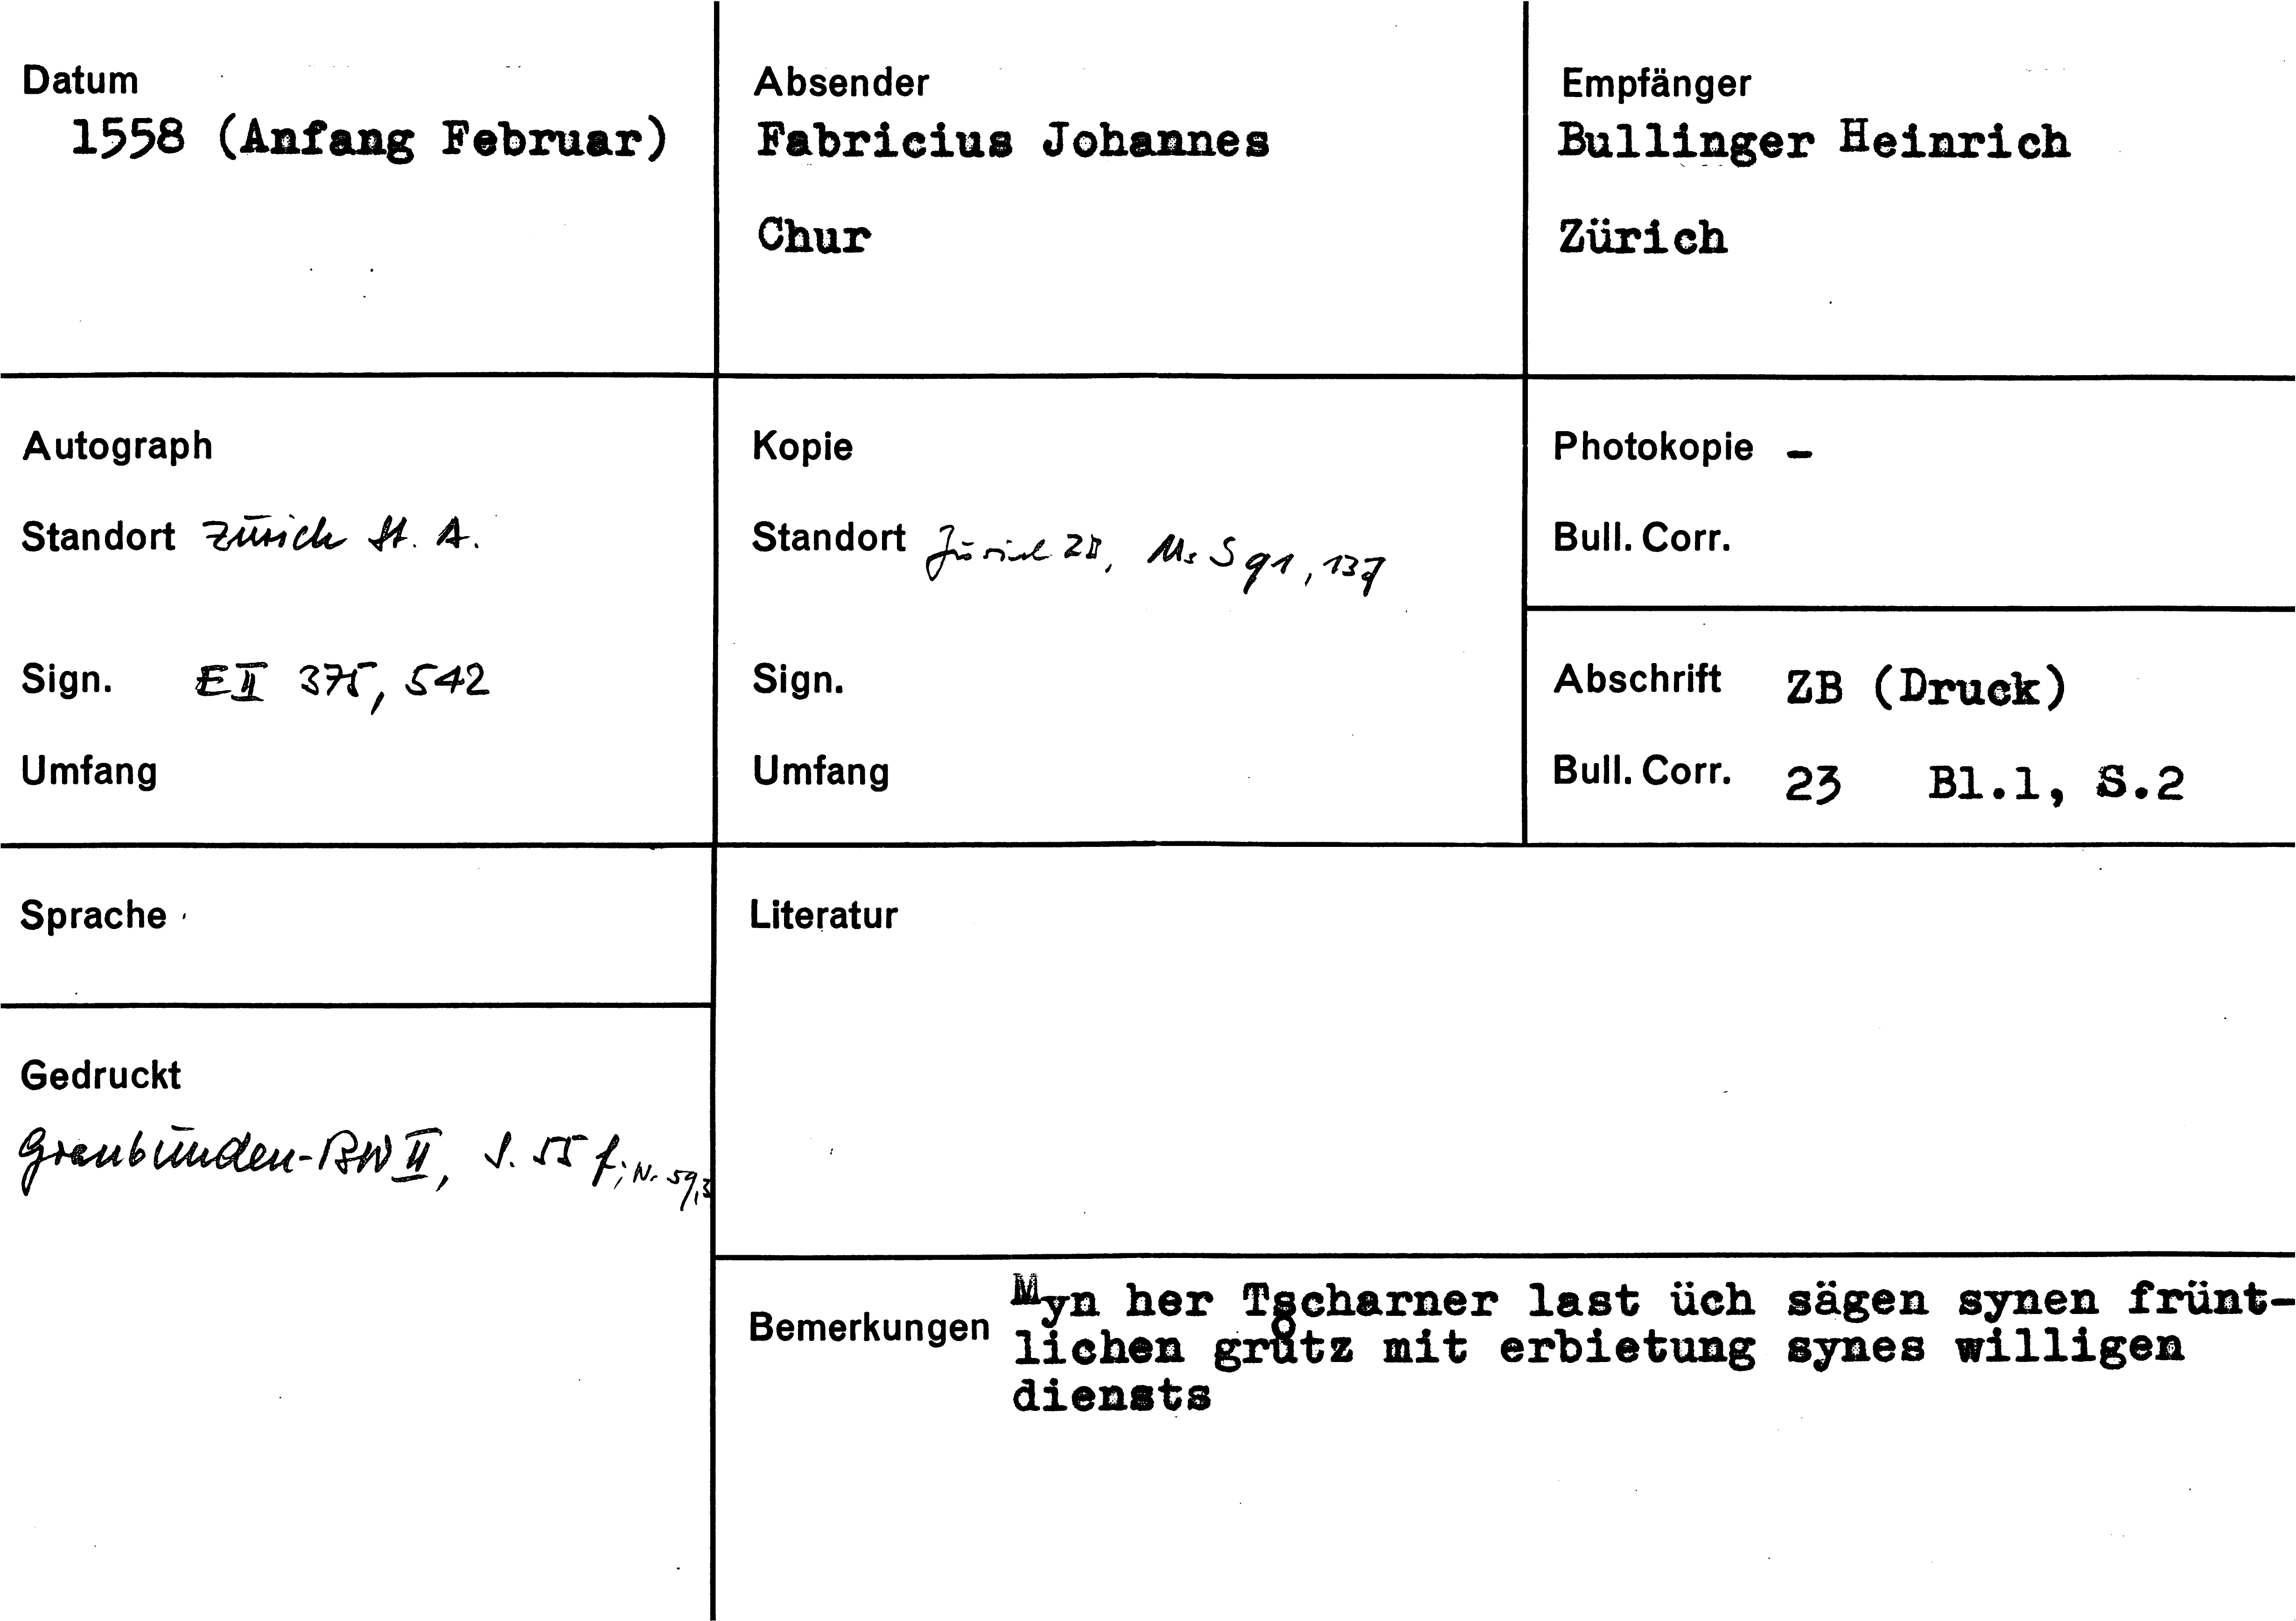 Datum
1558 (Anfang Februar)
Absender
Fabricius Johannes
Chur
Empfänger
Bullinger Heinrich
Zürich
Autograph
Standort Zürich St. A.
Sign. E II 375, 542
Umfang
Kopie
Standort Zürich ZB, Ms S 91, 137
Sign.
Umfang
Photokopie -
Bull. Corr.
Abschrift ZB (Druck)
Bull. Corr. 23 Bl.1, S.2
Sprache
Literatur
Gedruckt
Graubünden-BW II, S. 55 f; Nr 59,3
Bemerkungen Myn her Tscharner last üch sägen synen frünt-
lichen grůtz mit erbietung synes willigen
diensts